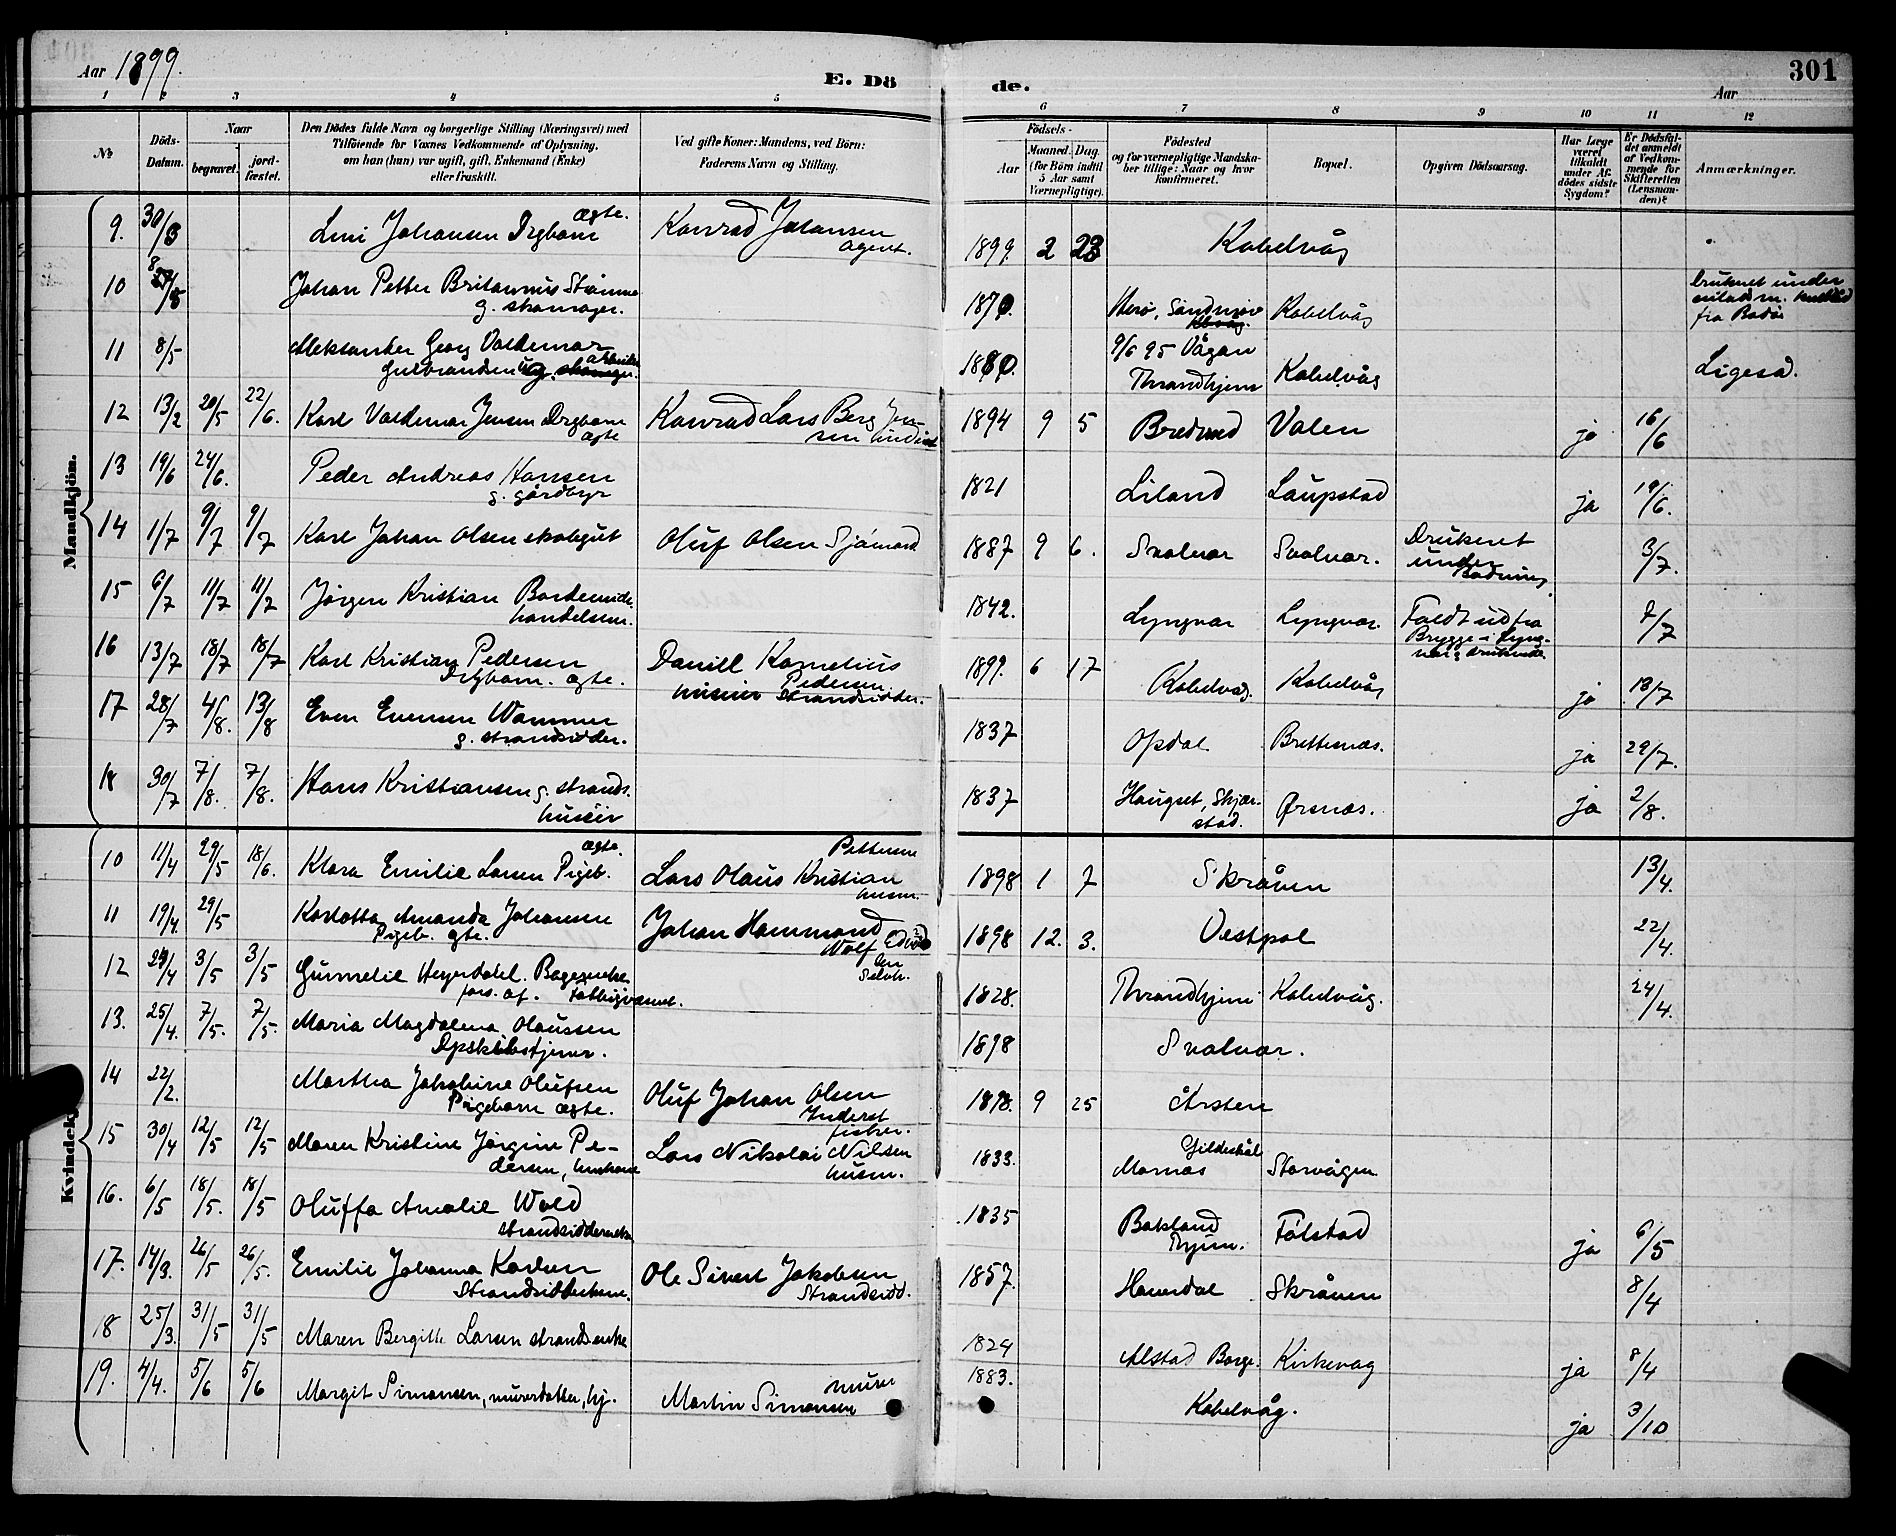 Aar 1899.
E. Dö
de.
301
Aar
1 2 3 4 5 6 7 8 9 10 11 12
№
Döds-Datum.
Naar
begravet.
jord-fæstet.
Den Dödes fulde Navn og borgerlige Stilling (Næringsvei) med
Tilföiende for Voxnes Vedkommende af Oplysning.
om han (hun) var ugift, gift, Enkemand (Enke)
eller fraskilt.
Ved gifte Koner: Mandens, ved Börn:
Faderens Navn og Stilling.
Födsels-
Aar
Maaned. Dag.
(for Börn indtil
5 Aar samt
Værnepligtige).
Födested
og for værnepligtige Mandska-
ber tillige: Naar og hvor
konfirmeret.
Bopæl.
Opgiven Dödsaarsag.
Har Læge
været
tilkaldt
under Af-
dödes sidste
Sygdom?
Er Dödsfal-
det anmeldt
af Vedkom-
mende for
Skifteretten
(Lensman-
den)?
Anmærkninger.
Mandkjön.
9. 30/3 Johansen Drgbarn ægte. Konrad Johansen agent. 1899 2 23 Kabelvåg
10 Johan Petter g. skomager. 1870. Herö, Kabelvåg under fra Bodö
11 8/5 Aleksander Georg Valdemar 1880. 9/6 95 Vågan Thrandhjem Kabelvåg Ligeså.
12 13/2 20/5 22/6. Karl Valdemar Jensen Drgbarn ægte Konrad Lars Berg Jensen 1894 9 5 Valen ja 16/6
13 19/6 24/6. Peder Andreas Hansen g. gårdbgr 1821 Liland Laupstad ja 19/6.
14 1/7 9/7 9/7 Karl Johan Olsen skolegut Oluf Olsen Sjömand 1887 9 6. Svolvær Svolvær. Druknet under Badning 3/7.
15 6/7 11/7 11/7 Jörgen Kristian handelsm. 1842. Lyngvær Lyngvær. Faldt ud fra Brygge i Lyng- vær; druknede. 7/7
16 13/7 18/7 18/7 Karl Kristian Pedersen Drgbarn. ægte. Daniel Kornelius Pedersen Strandsidder. 1899. 6 17 Kabelvåg. Kabelvåg ja 13/7
17 28/7 4/8. 13/8 Even Evensen Wammer g. strandsidder. 1837 Opdal Brettesnæs. ja 29/7.
18 30/7 7/8. 7/8. Hans Kristiansen g. strands. 1837 Haugset, Skjær- stad. Ørsnæs. ja 2/8.
Kvindekj
10 11/4 29/5 18/6. Klara Emilie Larsen Pigeb. ægte. Lars Olaus Kristian Pettersen husm. 1898 1 7 Skråven 13/4.
11 19/4. 29/5 Karlotta Amanda Johansen Pigeb. gte. Johan Hammond 1898 12. 3. Vestpol 22/4.
12 3/5 3/5 Heyerdahl. fors. af. Fattigvæsenet. 1828. Thrandhjem Kabelvåg. 24/4.
13. 25/4. 7/5. 7/5. Maria Magdalena Olaussen 1898 Svolvær.
14 22/2. Martha Jakobine Olufsen Pigebarn ægte. Oluf Johan Olsen Inderst fisker. 1898. 9 25 Årsten
15 30/4 12/5 12/5 Maren Kristine Jörgine Pe- dersen, Lars Nikolai Nilsen husm. 1833. Gildeskål Mornæs Storvågen
16. 6/5 18/5. 18/5 Oluffa Amalie Wold 1835 Bakland Thjem. Fölstad ja 6/5
17. 14/3. 26/5 26/5. Emilie Johanna Karlsen Strandsidderkone. Ole Sivert Jakobsen Strandsidd. 1857. Haverdal Skråven 8/4
18 25/3. 31/5 31/5 Maren Bergitte Larsen strands.enke 1824 Alstad Borge. Kirkevåg ja 8/4
19. 4/4. 5/6 5/6 Margit Simonsen, murerdatter, hj. Martin Simonsen murer 1883. Kabelvåg. ja 3/10